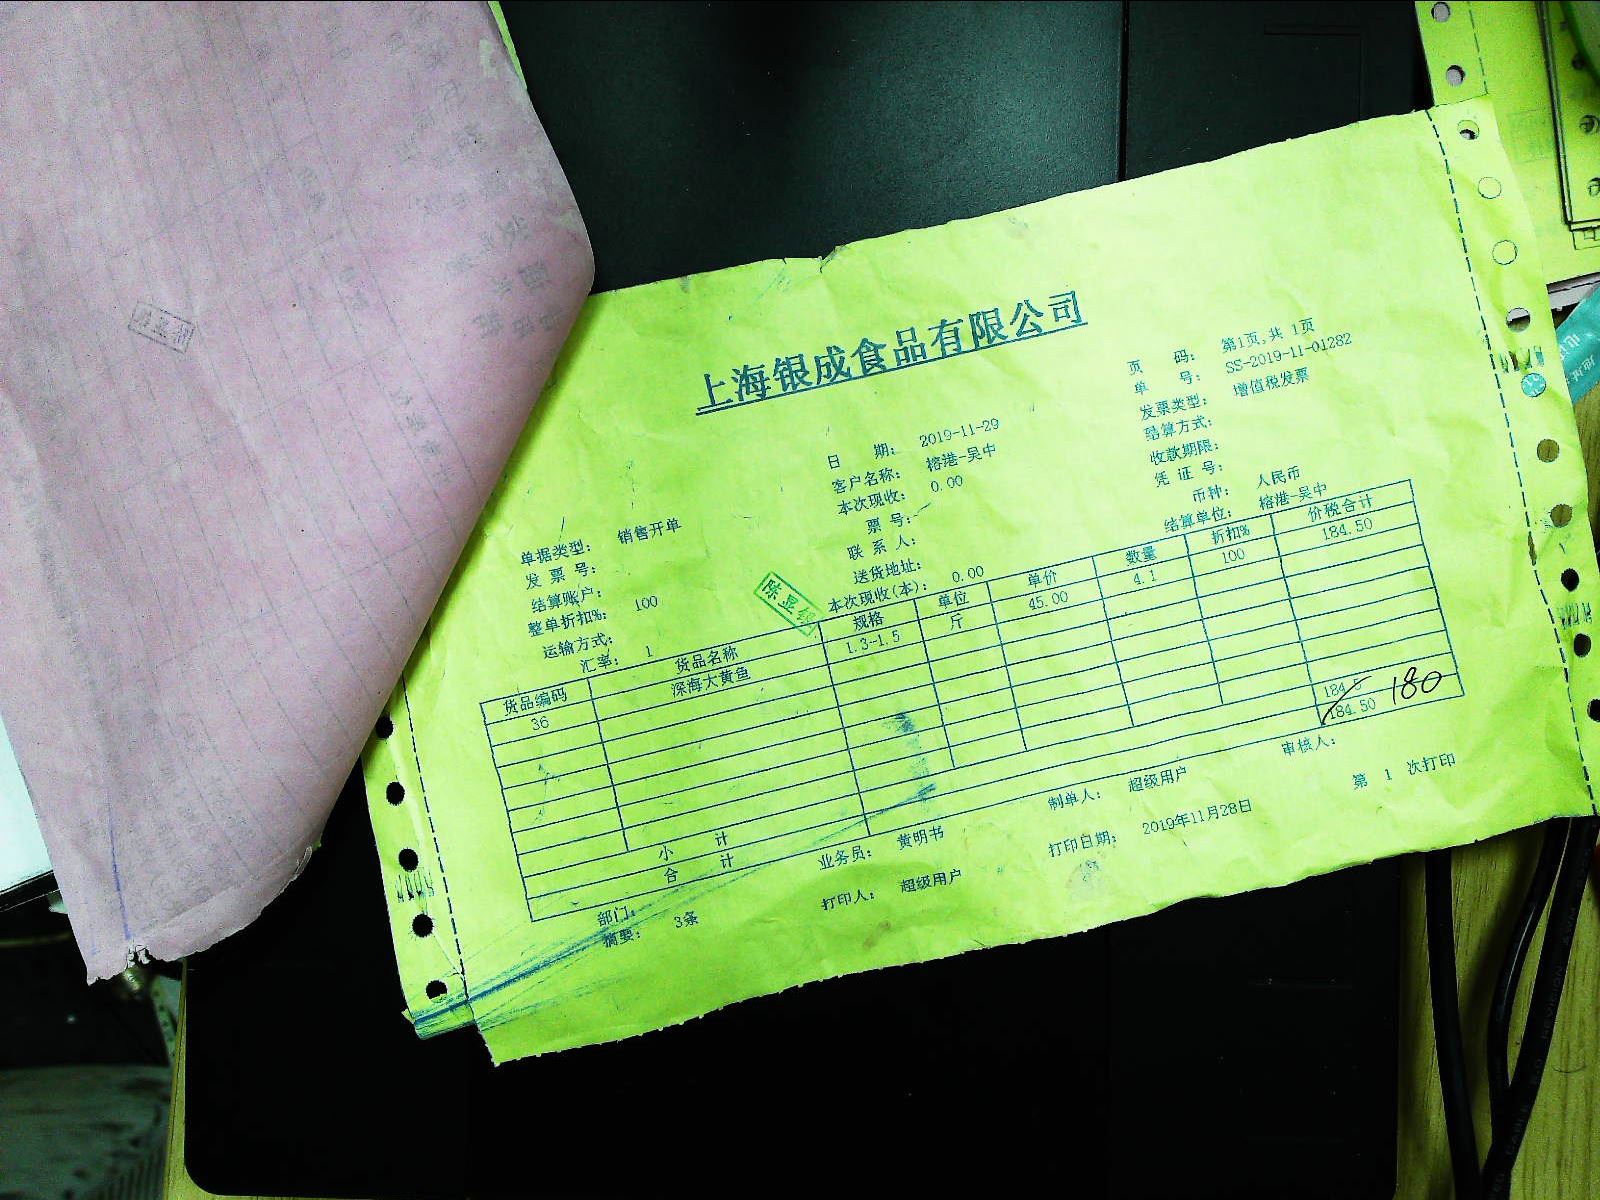 上海银成食品有限公司
页 码: 第1页,共 1页
单 号: SS-2019-11-01282
发票类型: 增值税发票
结算方式:
收款期限:
凭 证 号:
币种: 人民币
结算单位: 榕港-吴中
日 期: 2019-11-29
客户名称: 榕港-吴中
本次现收: 0.00
票 号:
联 系 人:
送货地址:
本次现收(本): 0.00
单据类型: 销售开单
发 票 号:
结算账户:
整单折扣%: 100
运输方式:
汇率: 1
陈显银
货品编码 货品名称 规格 单位 单价 数量 折扣% 价税合计
36 深海大黄鱼 1.3-1.5 斤 45.00 4.1 100 184.50
小 计 184.5
合 计 184.50
180
部门: 业务员: 黄明书 制单人: 超级用户 审核人:
摘要: 3条 打印人: 超级用户 打印日期: 2019年11月28日 第 1 次打印